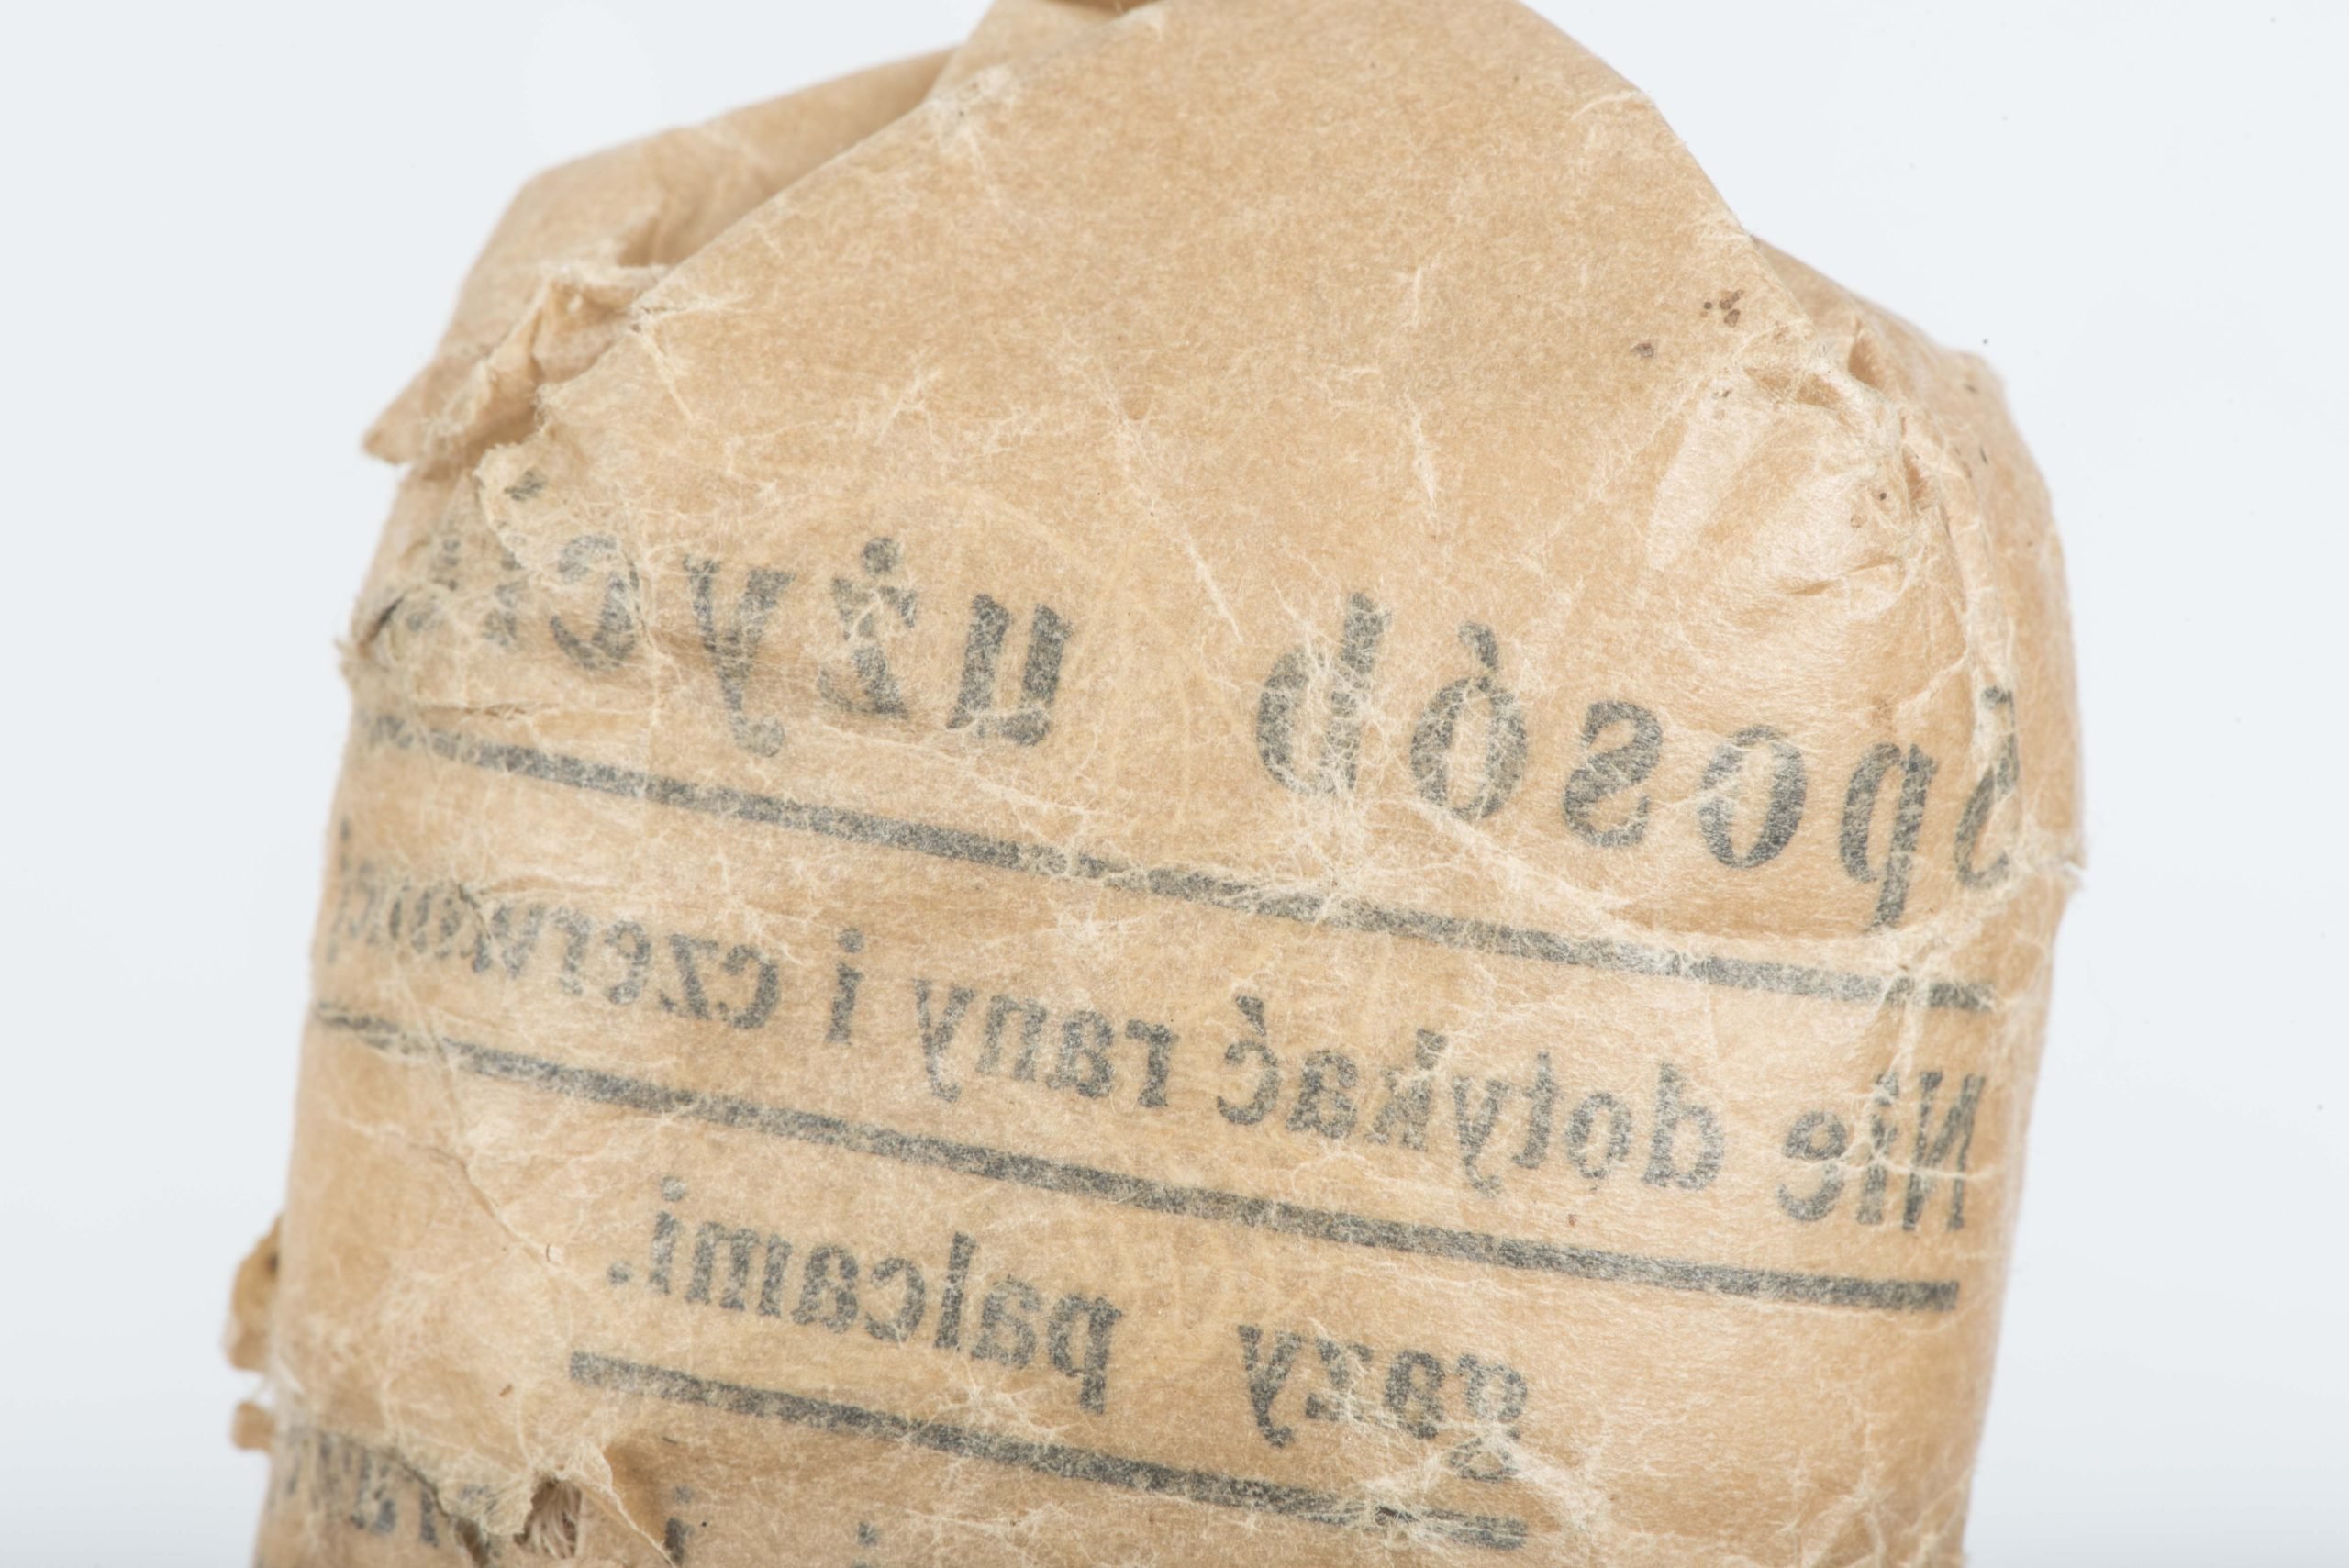 Sposób użycia
Nie dotykać rany i czerwonej
gazy palcami.